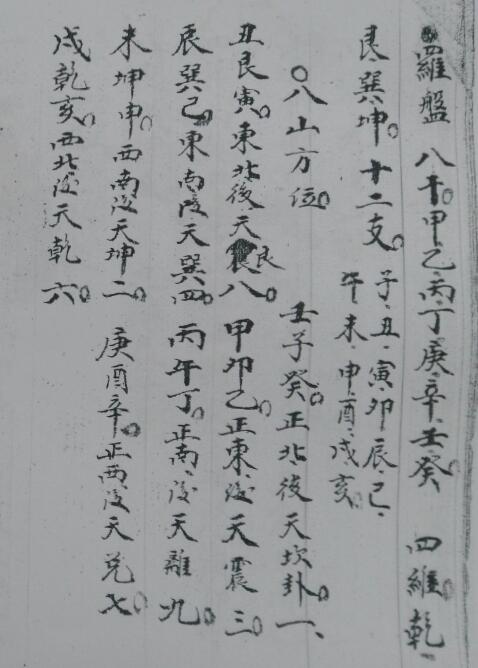 羅盤 八干。甲、乙、丙、丁、庚、辛、壬、癸。 四維。乾、
艮、巽、坤。十二支。子、丑、寅、卯、辰、巳、
午、未、申、酉、戌、亥。
○八山方位。 壬子癸。正北後天坎卦。一、
丑艮寅。東北後天艮八。甲卯乙。正東後天震三。
辰巽巳。東南後天巽四。丙午丁。正南後天離九。
未坤申。西南后天坤二。庚酉辛。正西后天兌七。
戌乾亥。西北后天乾六。